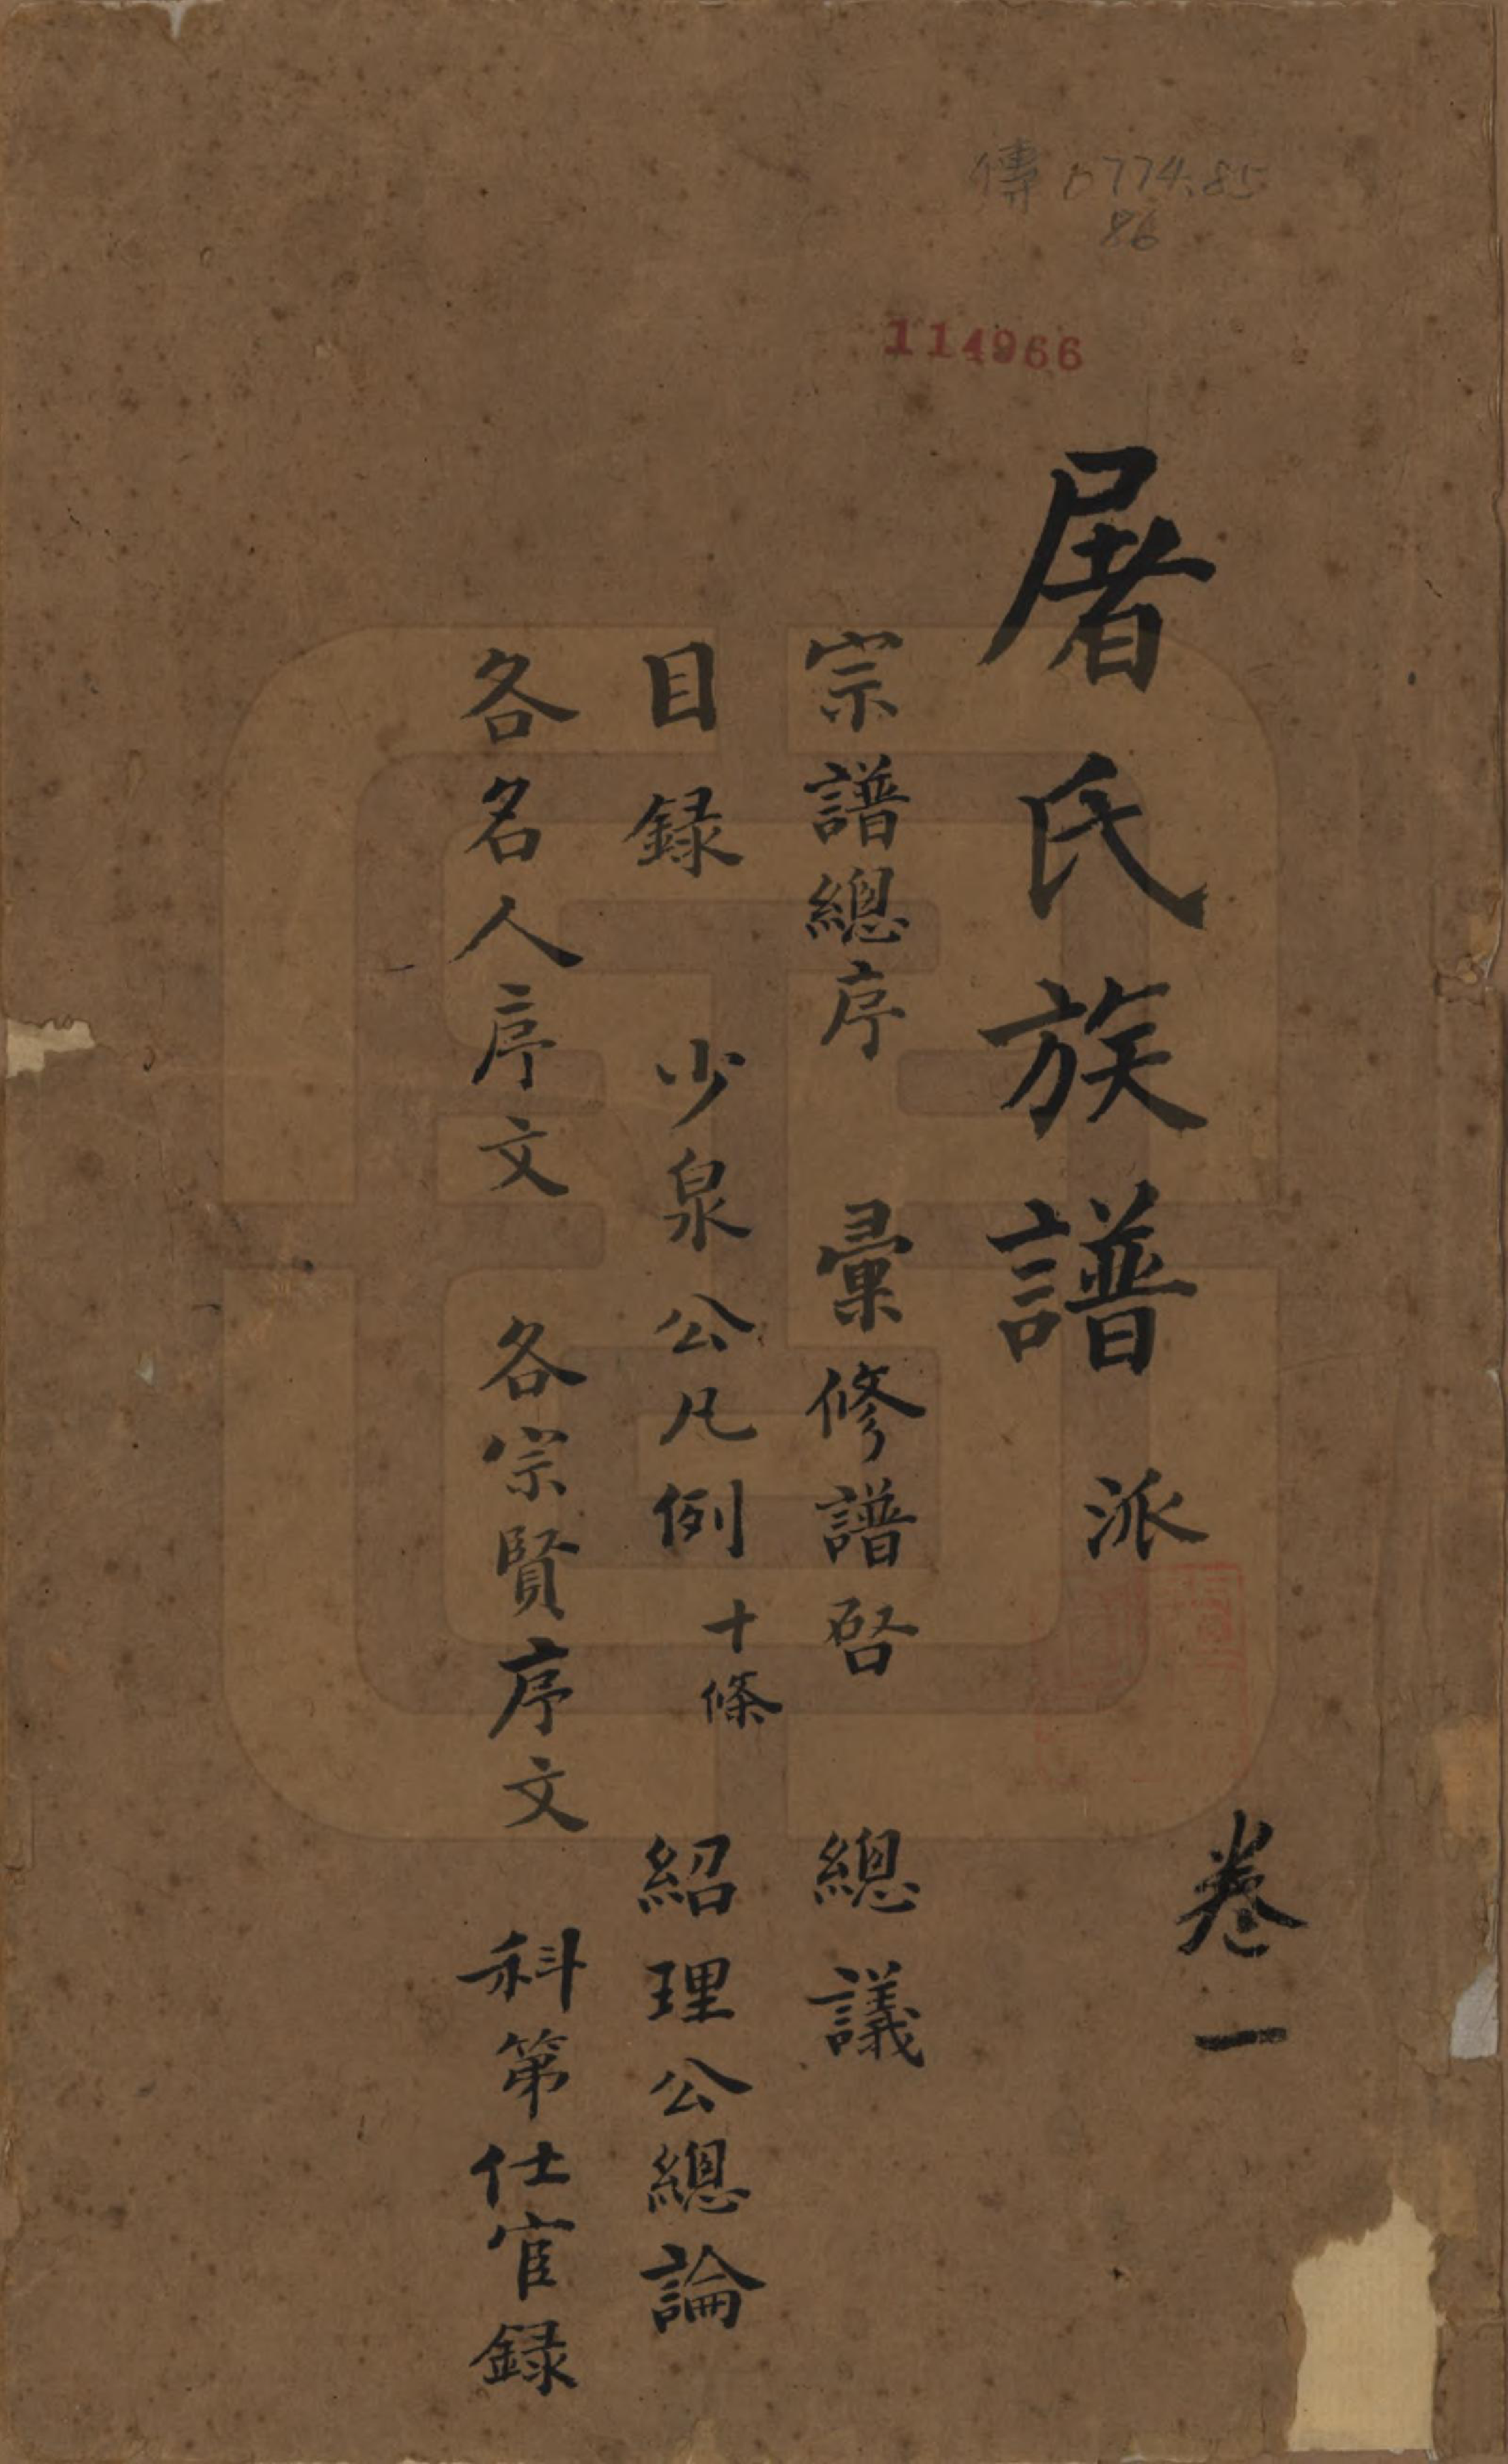 傳 0774.85
86
114966
卷一
屠氏族譜 派
宗譜總序 彚修譜啓 總議
目録 少泉公凡例十條 紹理公總論
各名人序文 各宗賢序文 科第仕宦録